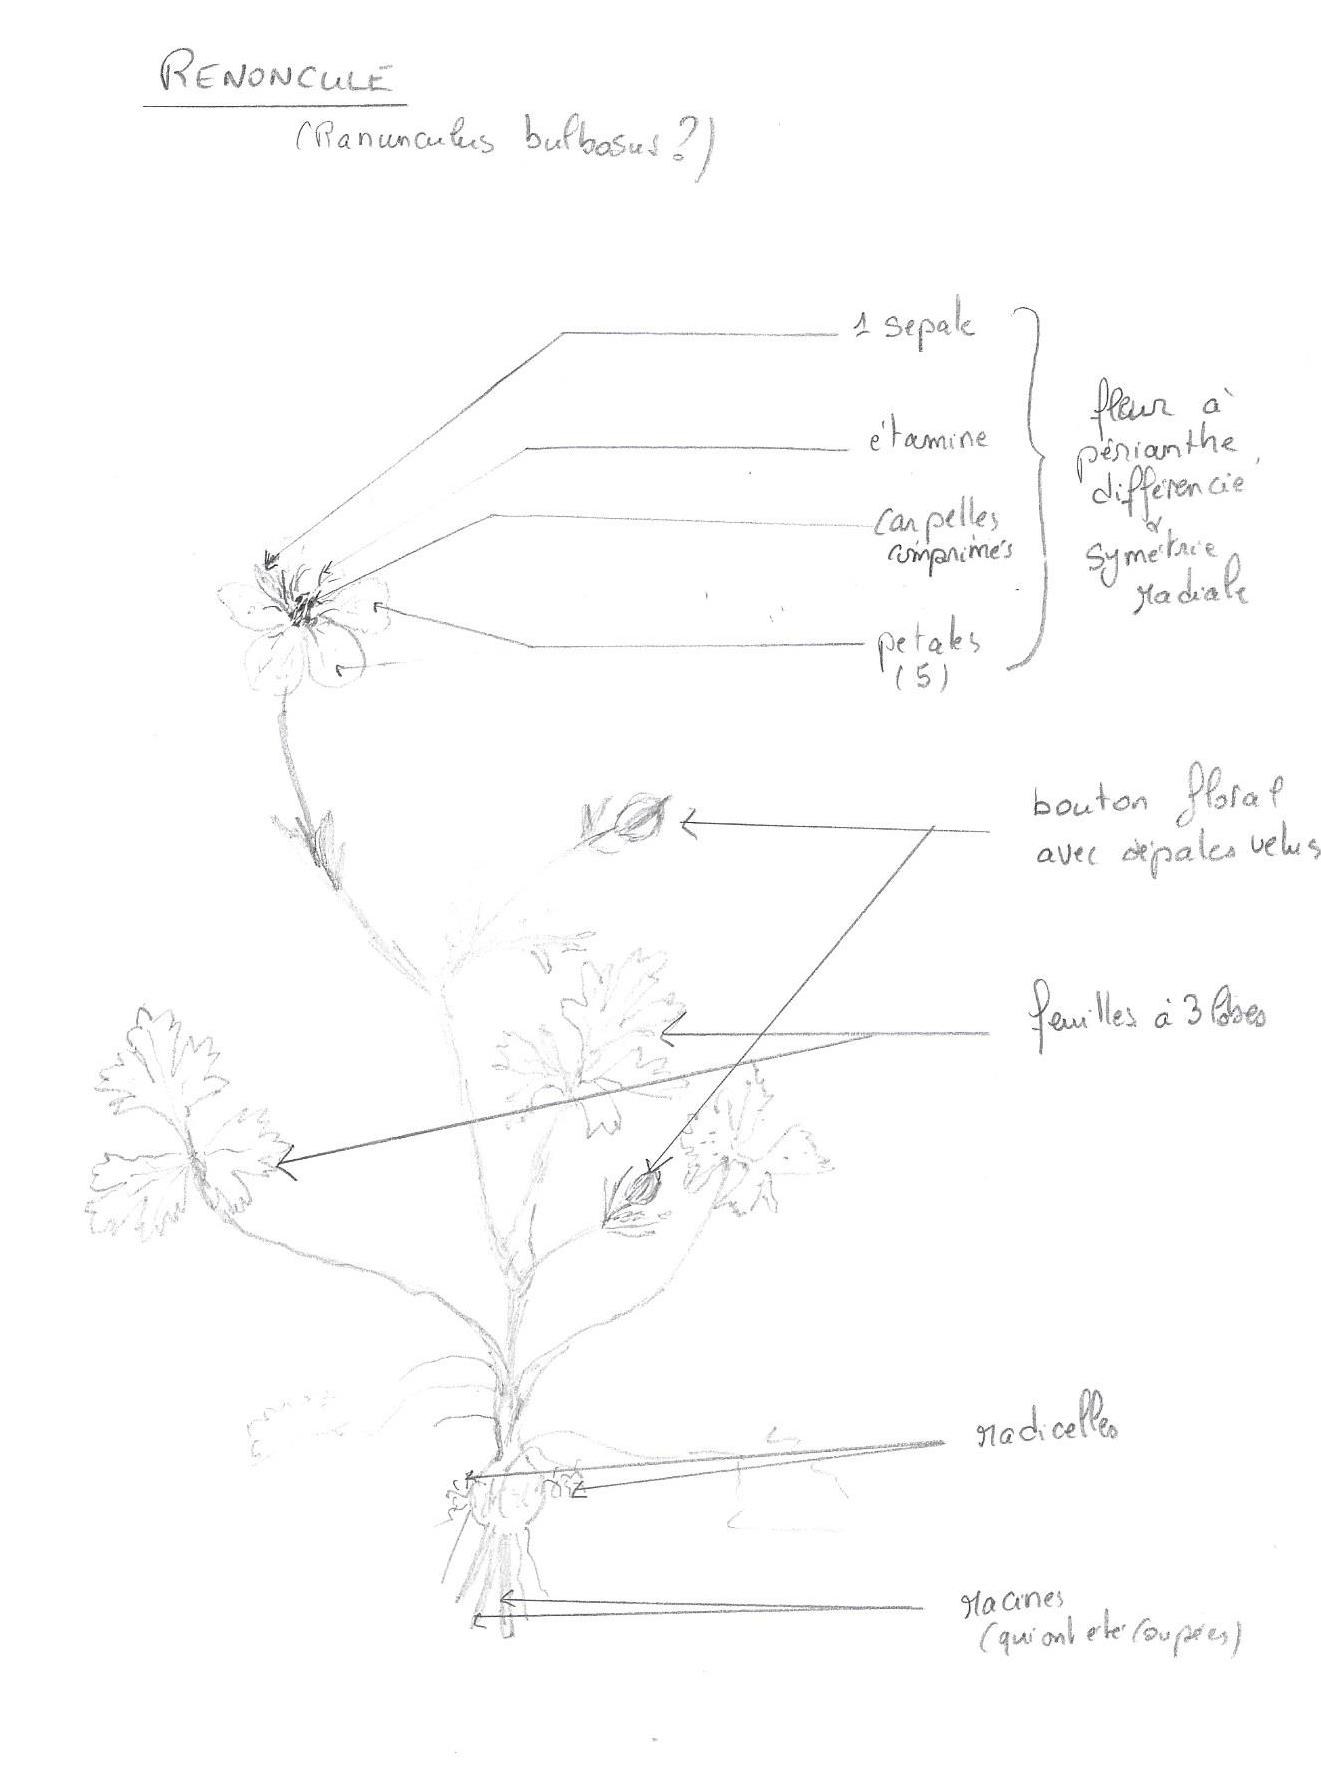 RENONCULE
(Ranunculus bulbosus?)
1 sépale
étamine
carpelles
comprimés
pétales
(5)
fleur à
périanthe
différencié
&
symétrie
radiale
bouton floral
avec sépales velus
feuilles à 3 lobes
radicelles
racines
(qui ont été coupées)